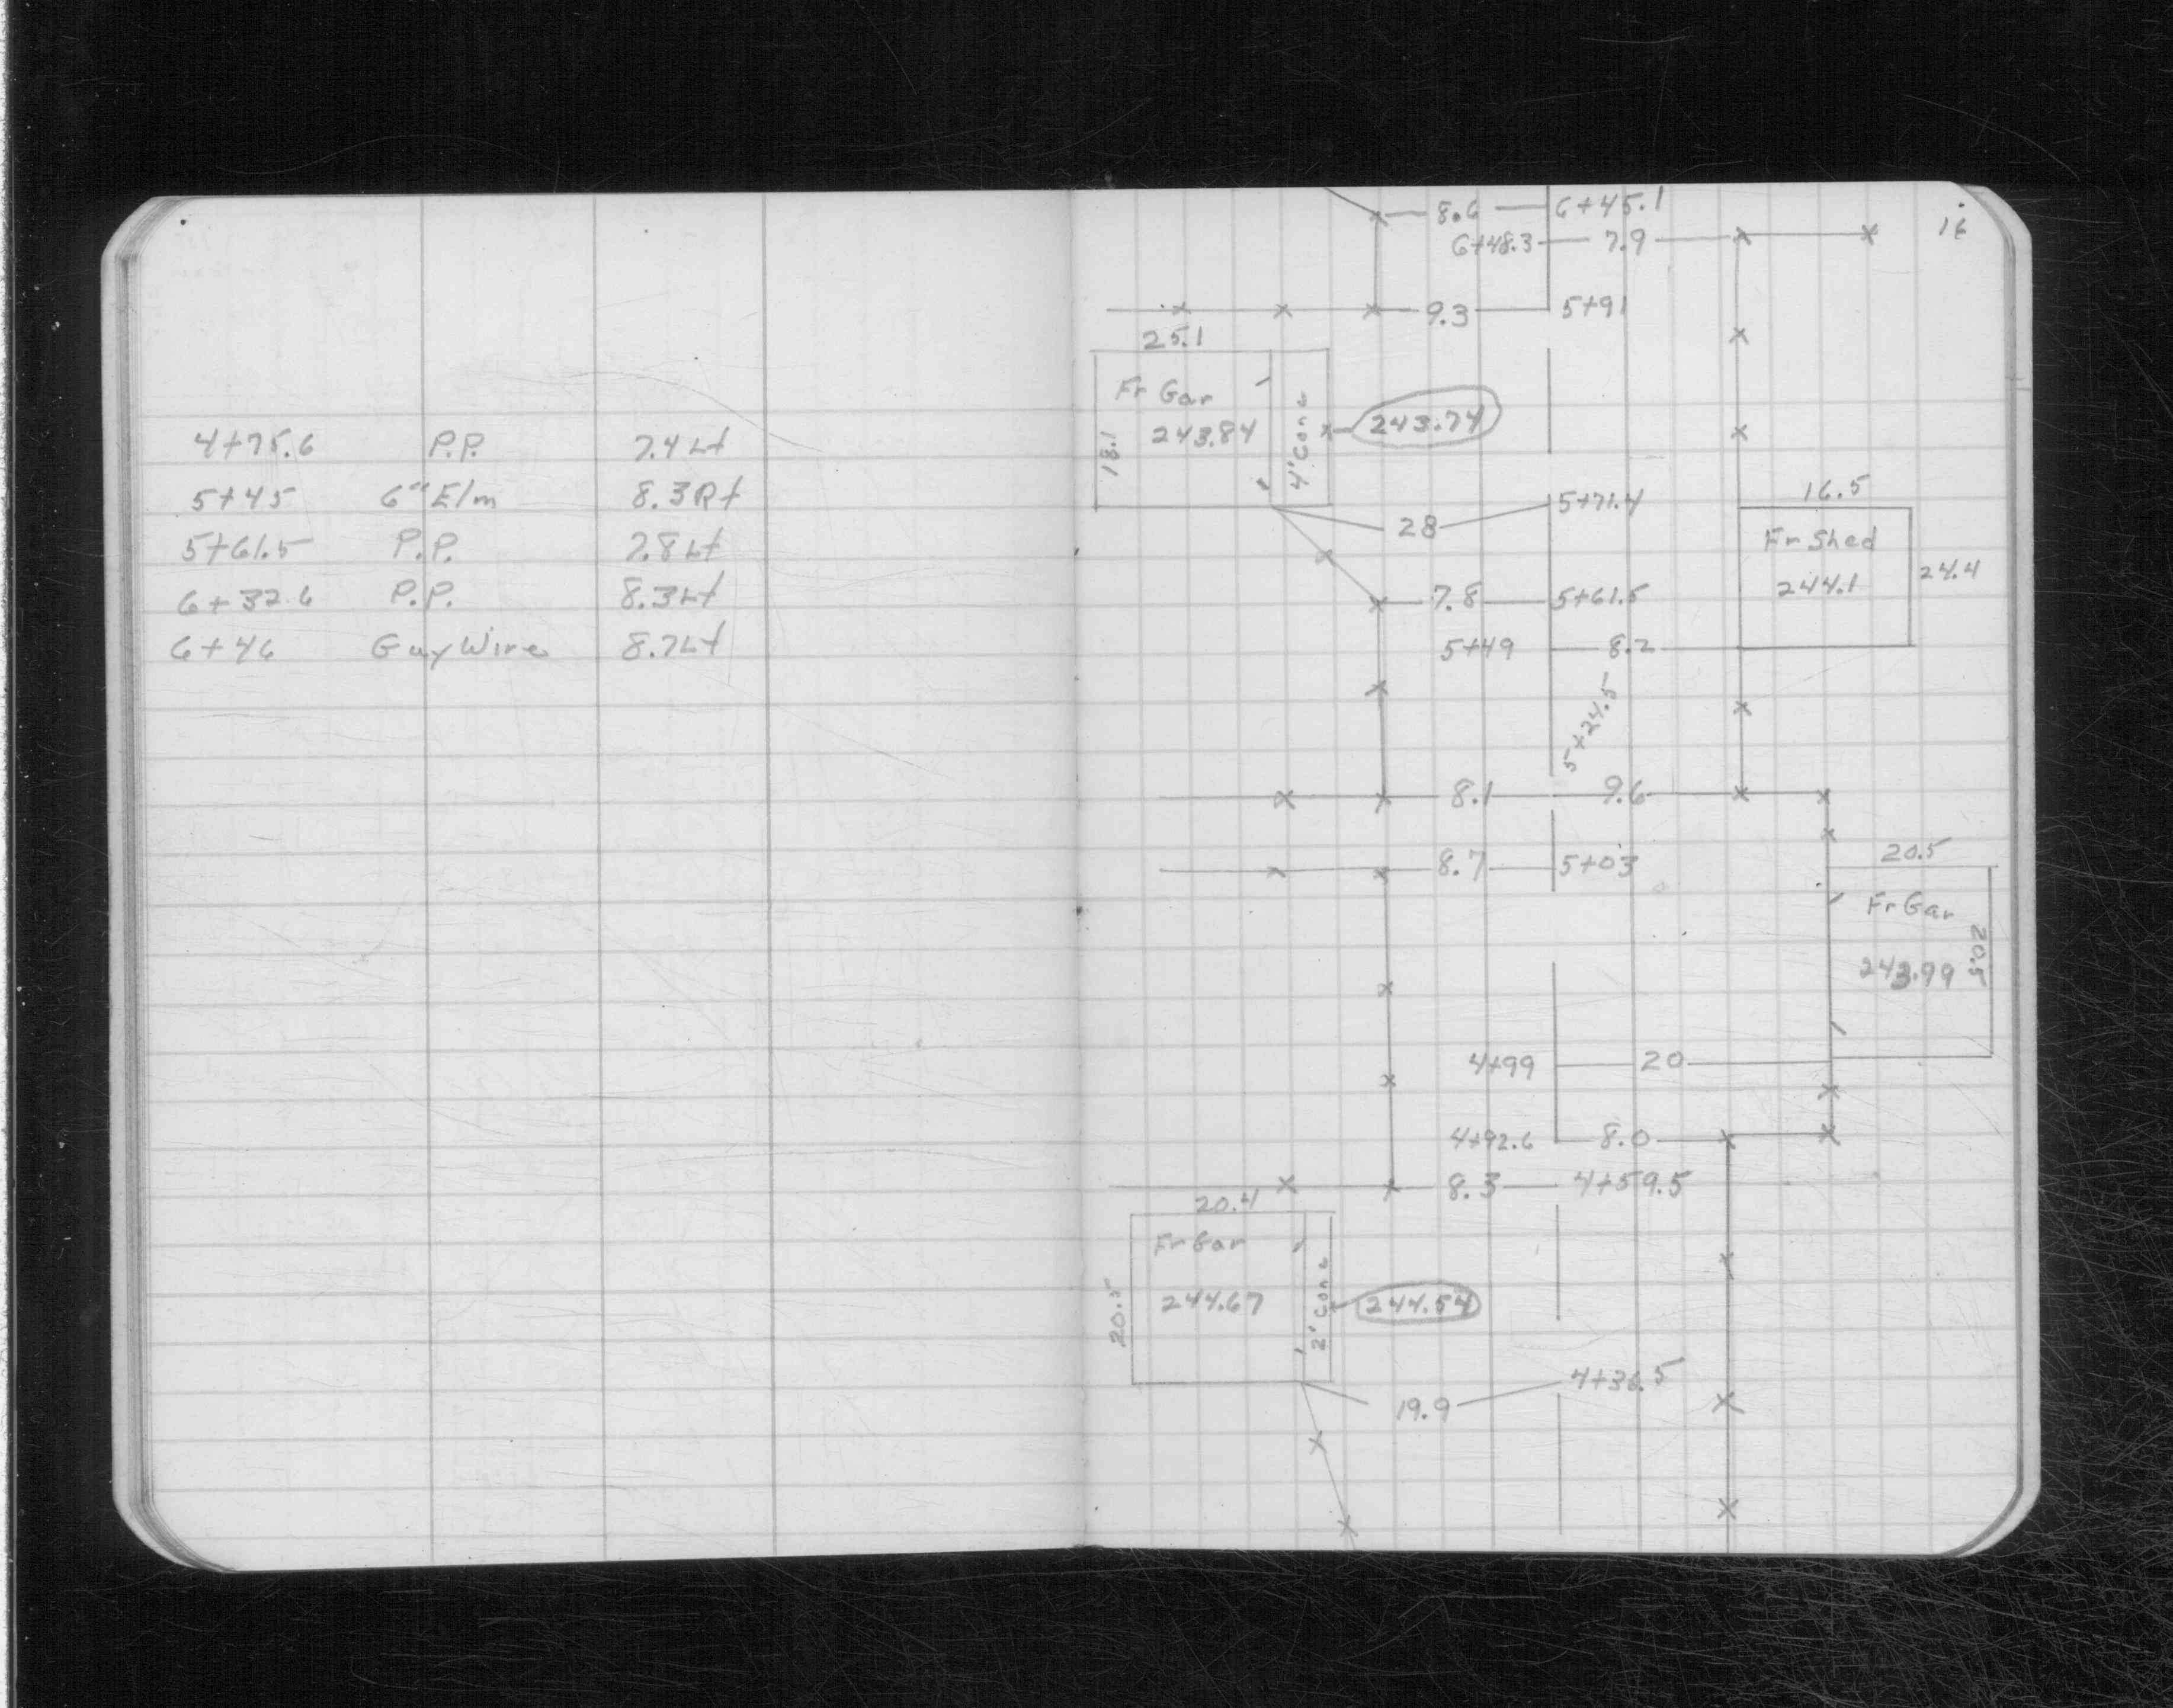 4+75.6 P.P. 7.4 Lt
5+45 6" Elm 8.3 Rt
5+61.5 P.P. 7.8 Lt
6+32.6 P.P. 8.3 Lt
6+46 Guy Wire 8.7 Lt
16
8.6 6+45.1
6+48.3 7.9
9.3 5+91
25.1
Fr Gar
243.84
18.1
4' Conc
243.74
5+71.4
28
16.5
Fr Shed
244.1
24.4
7.8 5+61.5
5+49 8.2
5+24.5
8.1 9.6
8.7 5+03
20.5
Fr Gar
243.99
20.5
4+99 20
4+92.6 8.0
8.3 4+59.5
20.4
Fr Gar
244.67
20.5
2' Conc
244.54
4+36.5
19.9